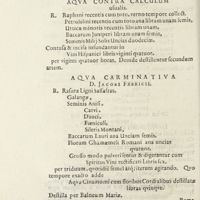 AQVA CONTRA CALCVLVM
usualis.
R. Raphani recentis cum toto, verno tempore collecti
Petroselini recentis cum toto ana libram unam semis,
Urticæ minoris recentis libram unam,
Baccarum Juniperi libram unam semis,
Seminis Milij Solis Uncias duodecim.
Contusa & incisa infundantur in
Vini Hispanici libris viginti quatuor.
per viginti quatuor horas. Deinde destillentur secundum
artem.
AQVA CARMINATIVA
D. Jacobi Fabricii.
R. Rasuræ Ligni Sassafras.
Galangæ,
Seminis Anisi,
Carvi,
Dauci,
Fœniculi,
Sileris Montani,
Baccarum Lauri ana Unciam semis.
Florum Chamæmeli Romani ana uncias
quatuor.
Grosso modo pulverisentur & digerantur cum
Spiritus Vini rectificati Libris sex,
per triduum, quotidie semel atque iterum agitando. Quo
tempore exacto adde
Aquæ Cinamomi cum floribus Cordialibus destillatæ
libras quinque.
Destilla per Balneum Mariæ.